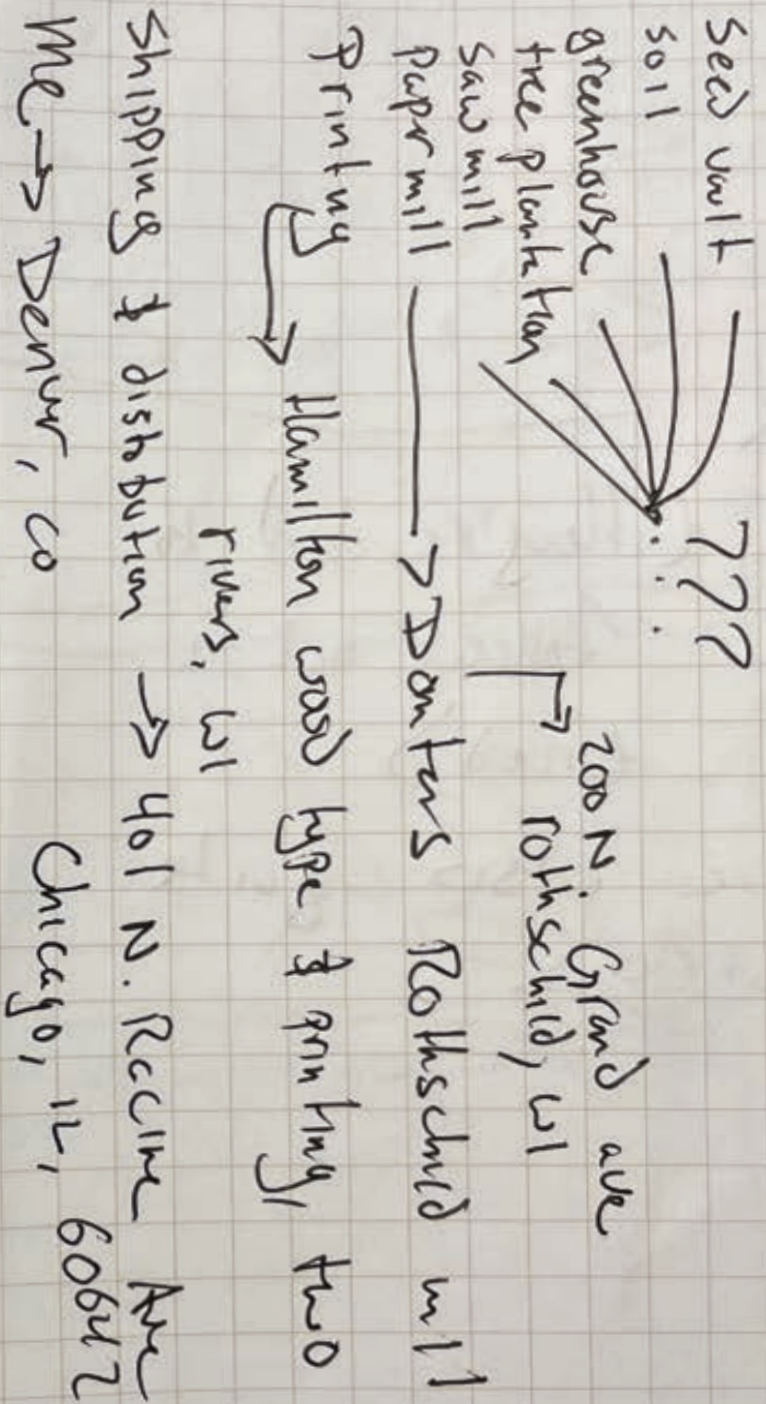 Seed vault
soil ???
greenhouse
tree plantation 200 N Grand ave
saw mill rothschild, WI
papr mill → Domtars Rothschild mill
Printing
→ Hamilton wood type & printing, two
rivers, WI
Shipping & distribution → 401 N. Racine Ave
Chicago, IL, 60642
Me → Denver, CO